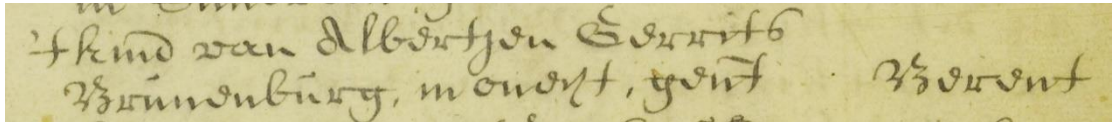 't kind van Albertjen Gerrits
Brunenburg, in onecht, gent Berent